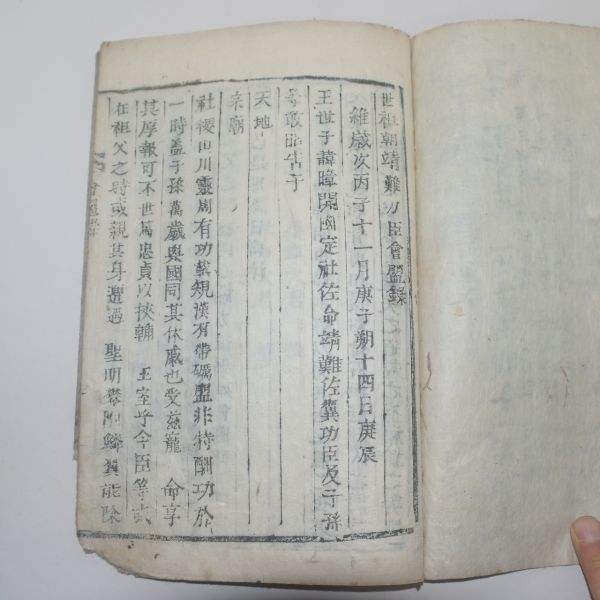 世祖朝靖難功臣會盟錄
維歲次丙子十一月庚子朔十四日庚辰
王世子諱暲開國定社佐命靖難佐翼功臣及子孫
等敢昭告于
天地
宗廟
社稷山川靈周有功載規漢有帶礪盟非特酬功於
一時盖子孫萬歲與國同其休戚也受玆寵 命享
其厚報可不世篤忠貞以挾輔 王室乎今臣等或
在祖父之時或親其身遭遇 聖明攀附鱗翼能除
會盟錄